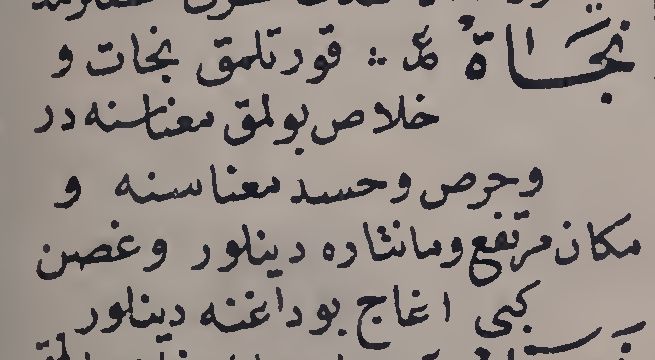 نجاة ‎:· قورتلمق نجات و
خلاص بولمق معناسنه در
وحرص وحسد معناسنه و
مكان مرتفع ومانثاره دينلور وغصن
كبى اغاج بوداغنه دينلور